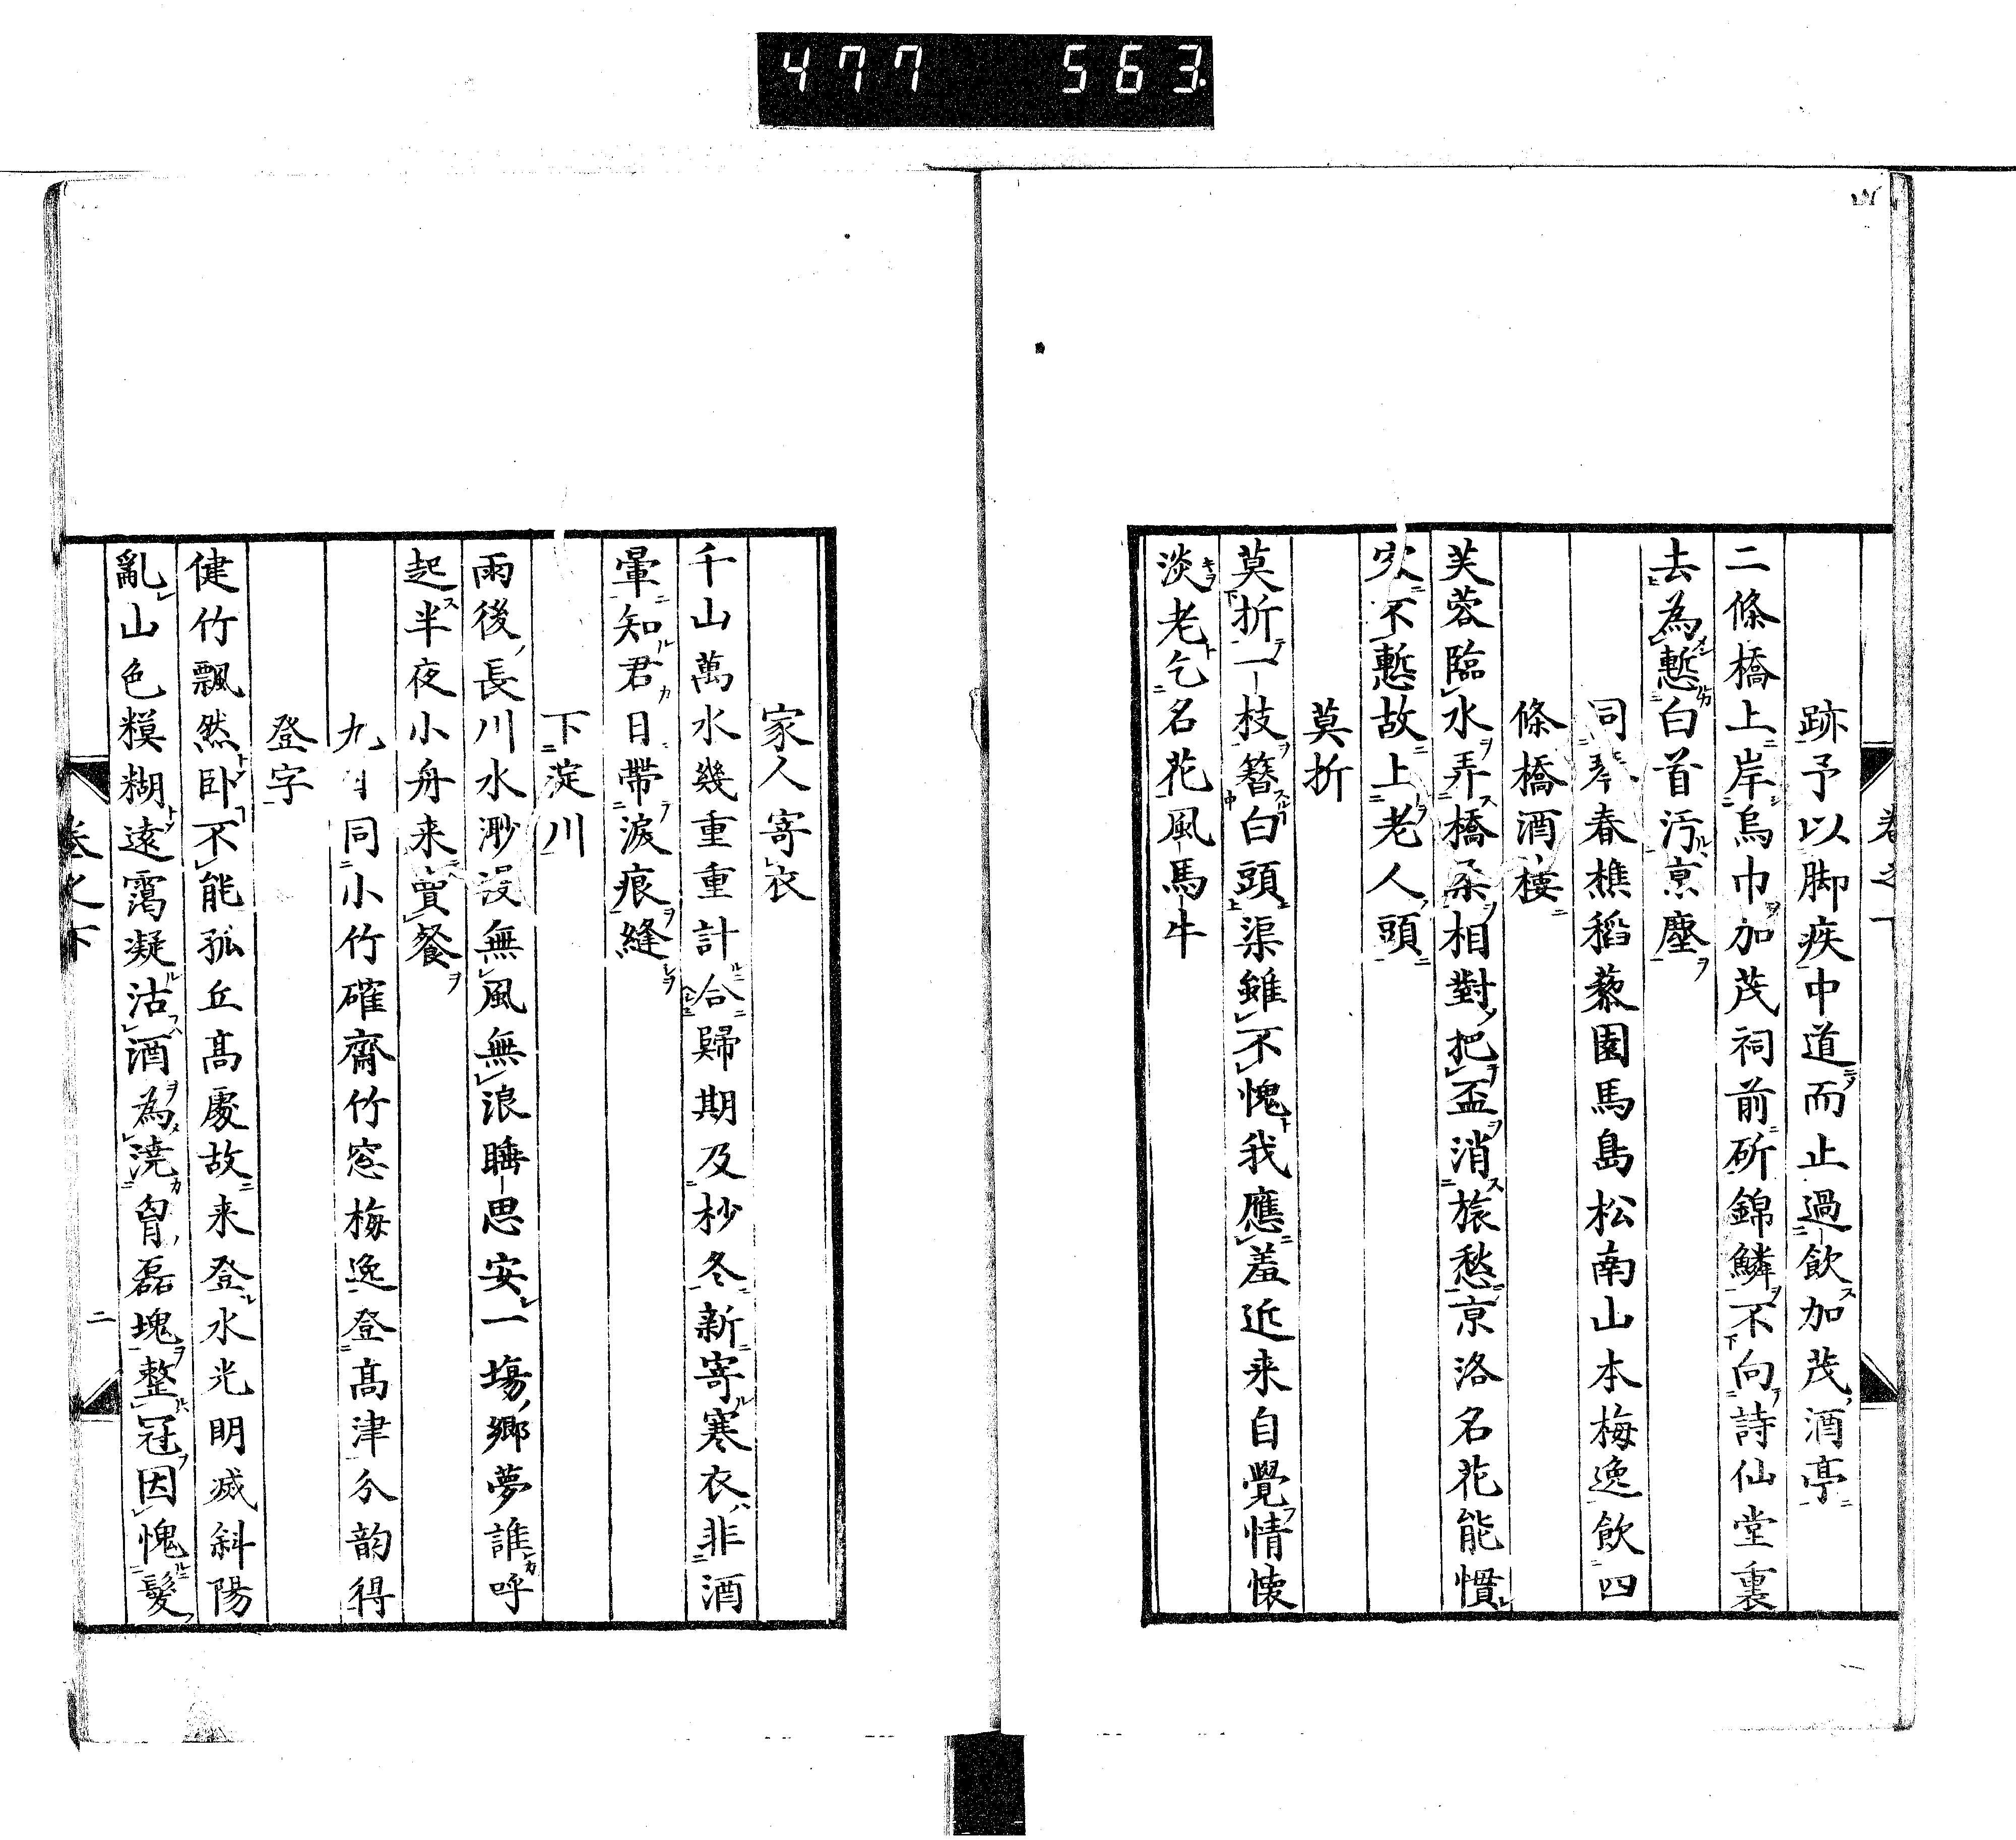 477 563
卷之下
跡予以脚疾中道而止過飲加茂酒亭
二條橋上岸烏巾加茂祠前斫錦鱗不向詩仙堂裏
去為慙白首汚京塵
同琴春樵稻藜園馬島松南山本梅逸飲四
條橋酒樓
芙蓉臨水弄橋朶相對把盃消旅愁京洛名花能慣
次不慙故上老人頭
莫折
莫折一枝簪白頭渠雖不愧我應羞近来自覺情懐
淡老乞名花風馬牛
家人寄衣
千山萬水幾重重計合歸期及杪冬新寄寒衣非酒
暈知君日帶淚痕縫
下淀川
雨後長川水渺沒無風無浪睡思安一塲鄉夢誰呼
起半夜小舟来賣餐
九日同小竹確齋竹窓梅逸登髙津分韵得
登字
健竹飄然卧不能孤丘髙處故来登水光明滅斜陽
亂山色糢糊遠靄凝沽酒為澆胷磊塊整冠因愧髮
卷之下
二